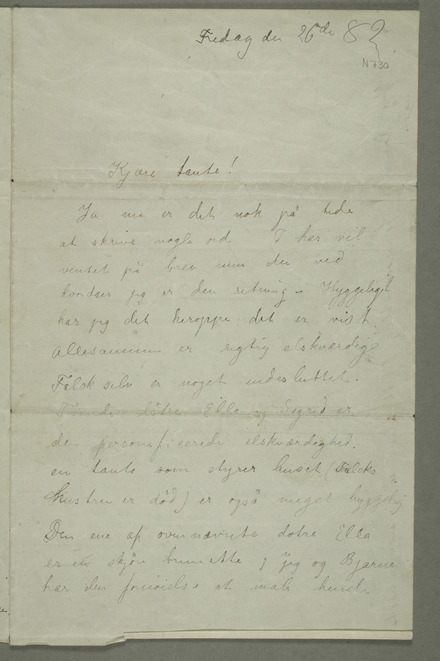 Fredag den 26de 82
N 730
Kjære tante!
Ja nu er det nok på tide
at skrive nogle ord. I har vel
ventet på brev men du ved
jeg er den Hyggeligt
har jeg det heroppe det er vist
allesammen er rigtig elskværdige
Falck selv er noget indesluttet.
døtre Ella og Sigrid er
den personificerede elskværdighed.
en tante som styrer huset (Falcks
hustru er død) er også meget hyggelig
Den ene af ovennævnte døtre Ella
er en skjøn brunette; jeg og Bjarne
har den fornøielse at male hende.